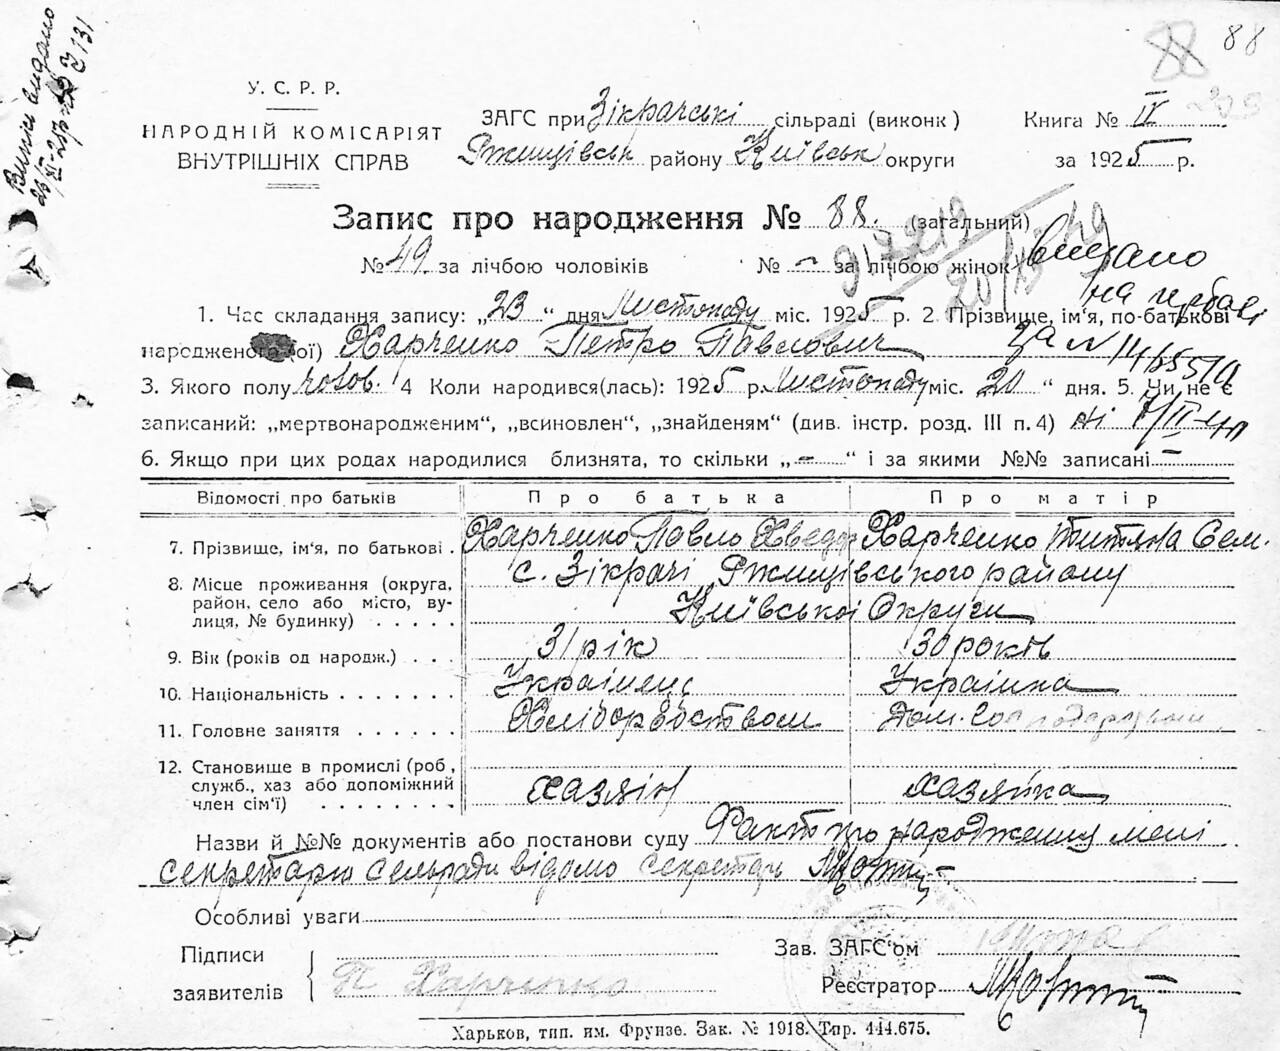 88
Випись видано
У. С. Р. Р.
НАРОДНІЙ КОМІСАРІЯТ
ВНУТРІШНІХ СПРАВ
ЗАГС при Зікрачські сільраді (виконк)
Ржищівськ району Київськ округи
Книга № IV
за 1925 р.
Запис про народження № 88. (загальний)
№ 49 за лічбою чоловіків № – за лічбою жінок
видано
1. Час складання запису: „23“ дня Листопаду міс. 1925 р. 2 Прізвище, ім'я, по-батькові
народженого(ої) Харченко Петро Павлович
за № 1465519
3. Якого полу чолов. 4 Коли народився(лась): 1925 р. Листопаду міс. 20 “ дня. 5. Чи не є
записаний: „мертвонародженим“, „всиновлен“, „знайденям“ (див. інстр. розд. III п. 4) ні
6. Якщо при цих родах народилися близнята, то скільки „–“ і за якими №№ записані –
Відомості про батьків Про батька Про матір
7. Прізвище, ім'я, по батькові . Харченко Павло Хведор Харченко Титяна Сем.
8. Місце проживання (округа, район, село або місто, вулиця, № будинку) . . . . . с. Зікрачі Ржищівського району
Київської Округи
9. Вік (років од народж.) . . . 31 рік 30 років
10. Національність . . . . . . . Українець Українка
11. Головне заняття . . . . . . Хліборобством Дом.
12. Становище в промислі (роб, служб., хаз або допоміжний член сім'ї) . . . . . . . хазяїн хазяйка
Назви й №№ документів або постанови суду Факт про народження мені
секретарю сельради відомо секретар
Особливі уваги
Підписи
заявителів
П Харченко
Зав. ЗАГС'ом
Реєстратор
Харьков, тип. им. Фрунзе. Зак. № 1918. Тир. 444.675.